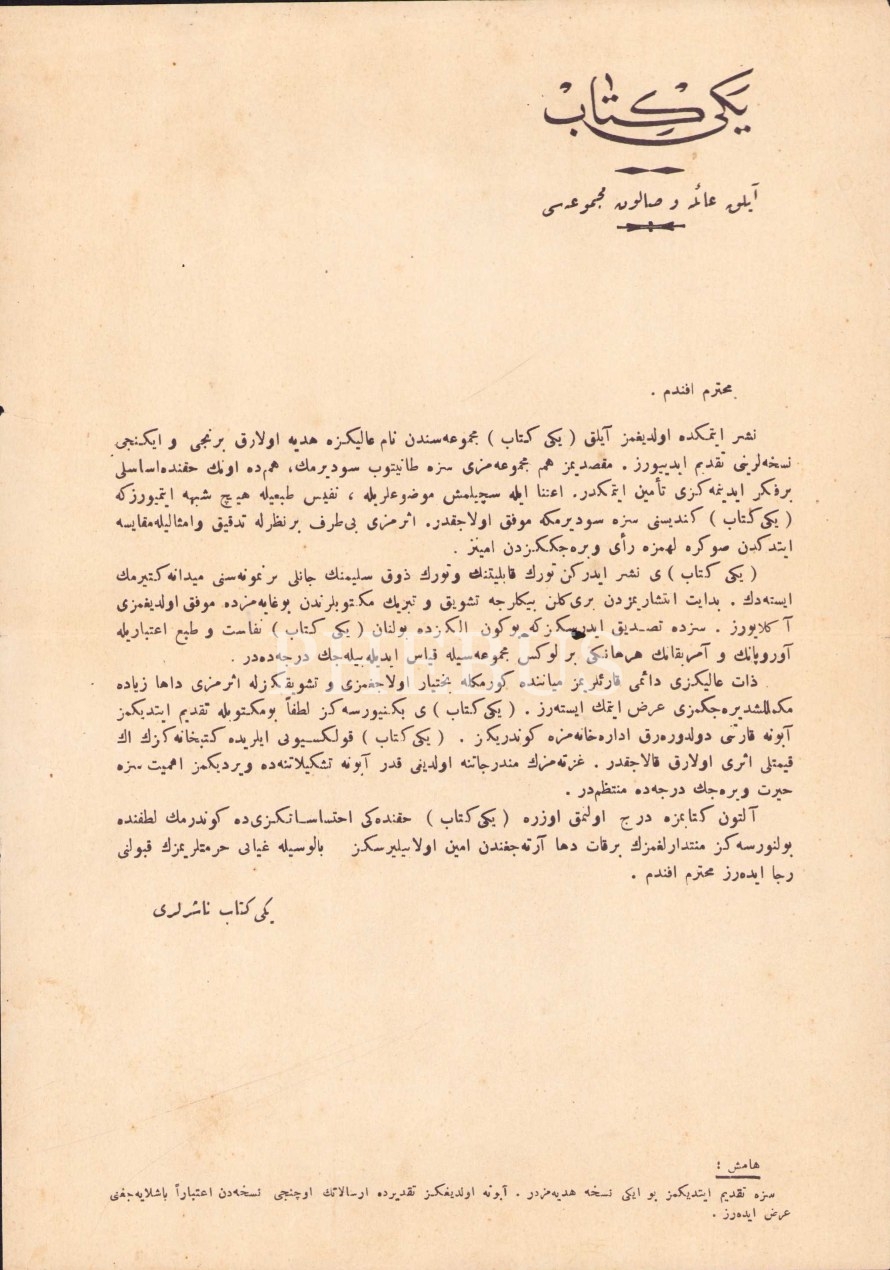 يكی كتاب
آيلق عائله و صالون مجموعه‌سی
محترم افندم .
نشر ايتمكده اولديغمز آيلق ( يكی كتاب ) مجموعه‌سندن نام عاليكزه هديه اولارق برنجی و ايكنجی
نسخه‌لرينی تقديم ايدييورز . مقصديمز هم مجموعه‌مزی سزه طانيتوب سوديرمك، هم‌ده اونك حقنده‌اساسلی
برفكر ايدينمه‌كزی تأمين ايتمكدر. اعتنا ايله سچيلمش موضوعلريله ، نفيس طبعيله هيچ شبهه ايتميورزكه
( يكی كتاب ) كنديسنی سزه سوديرمكه موفق اولاجقدر. اثرمزی بی‌طرف برنظرله تدقيق وامثاليله‌مقايسه
ايتدكدن صوكره لهمزه رأی ويره‌جككزدن امينز .
( يكی كتاب ) ی نشر ايدركن تورك قابليتنك وتورك ذوق سليمنك جانلی برنمونه‌سنی ميدانه‌كتيرمك
ايسته‌دك . بدايت انتشاريمزدن بری‌كلن بيكلرجه تشويق و تبريك مكتوبلرندن بوغايه‌مزده موفق اولديغمزی
آكلايورز . سزده تصديق ايدرسكزكه بوكون الكزده بولنان ( يكی كتاب ) نفاست و طبع اعتباريله
آوروپانك و آمريقانك هرهانكی بر لوكس مجموعه‌سيله قياس ايديله‌بيله‌جك درجه‌ده‌در .
ذات عاليكزی دائمی قارئلريمز مياننده كورمكله بختيار اولاجغمزی و تشويقكزله اثرمزی داها زياده
مكمللشديره‌جكمزی عرض ايتمك ايسته‌رز . ( يكی كتاب ) ی بكنيورسه‌كز لطفاً بومكتوبله تقديم ايتديكمز
آبونه قارتنی دولدوره‌رق اداره‌خانه‌مزه كوندريكز . ( يكی كتاب ) قولكسيونی ايلريده كتبخانه‌كزك اك
قيمتلی اثری اولارق قالاجقدر . غزته‌مزك مندرجاتنه اولدينی قدر آبونه تشكيلاتنه‌ده ويرديكمز اهميت سزه
حيرت ويره‌جك درجه‌ده منتظم‌در .
آلتون كتابمزه درج اولنمق اوزره ( يكی كتاب ) حقنده‌كی احتساساتكزی‌ده كوندرمك لطفنده
بولنورسه‌كز منتدارلغمزك برقات دها آرته‌جغندن امين اولابيليرسكز بالوسيله غيابی حرمتلريمزك قبولنی
رجا ايده‌رز محترم افندم .
يكی كتاب ناشرلری
هامش :
سزه تقديم ايتديكمز بو ايكی نسخه هديه‌مزدر . آبونه اولديغكز تقديرده ارسالاتك اوچنجی نسخه‌دن اعتباراً باشلايه‌جغنی
عرض ايده‌رز .